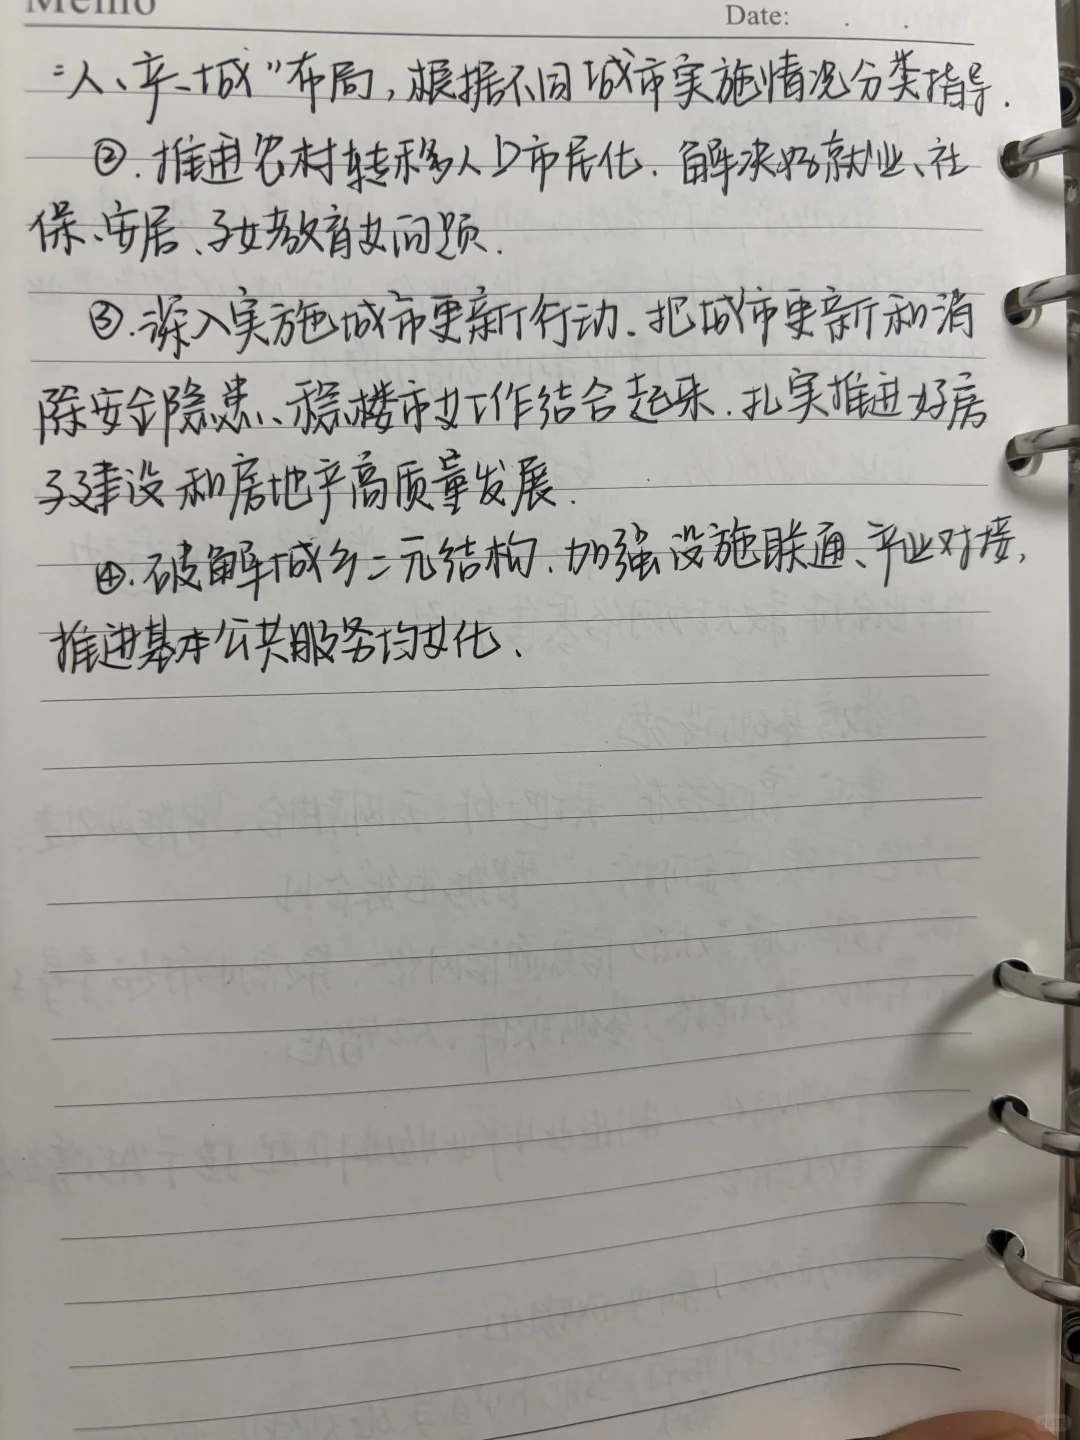 Memo
Date: . .
“人、产、城”布局,根据不同城市实施情况分类指导.
②.推进农村转移人口市民化.解决好就业、社
保、安居、子女教育等问题.
③.深入实施城市更新行动.把城市更新和消
除安全隐患、稳楼市等工作结合起来.扎实推进好房
子建设和房地产高质量发展.
④.破解城乡二元结构.加强设施联通、产业对接,
推进基本公共服务均等化、